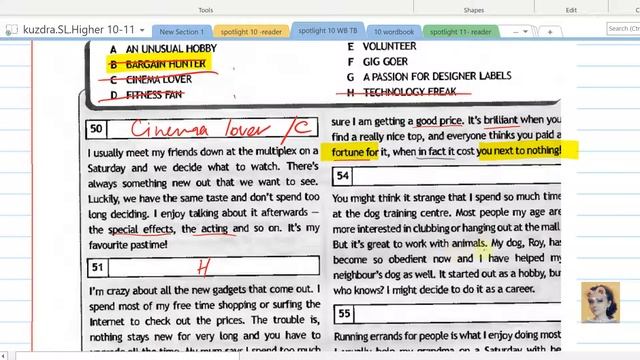 Tools
Shapes
Edit
kuzdra.SL.Higher 10-11
New Section 1
spotlight 10 -reader
spotlight 10 WB TB
10 wordbook
spotlight 11- reader
A AN UNUSUAL HOBBY
B BARGAIN HUNTER
C CINEMA LOVER
D FITNESS FAN
E VOLUNTEER
F GIG GOER
G A PASSION FOR DESIGNER LABELS
H TECHNOLOGY FREAK
50 Cinema lover /C
I usually meet my friends down at the multiplex on a
Saturday and we decide what to watch. There's
always something new out that we want to see.
Luckily, we have the same taste and don't spend too
long deciding. I enjoy talking about it afterwards –
the special effects, the acting and so on. It's my
favourite pastime!
51 H
I'm crazy about all the new gadgets that come out. I
spend most of my free time shopping or surfing the
Internet to check out the prices. The trouble is,
nothing stays new for very long and you have to
upgrade all the time. My mum says I spend too much
sure I am getting a good price. It's brilliant when you
find a really nice top, and everyone thinks you paid a
fortune for it, when in fact it cost you next to nothing!
54
You might think it strange that I spend so much time
at the dog training centre. Most people my age are
more interested in clubbing or hanging out at the mall.
But it's great to work with animals. My dog, Roy, has
become so obedient now and I have helped my
neighbour's dog as well. It started out as a hobby, but
who knows? I might decide to do it as a career.
55
Running errands for people is what I enjoy doing most.
I usually help my grandma on a Saturday with her